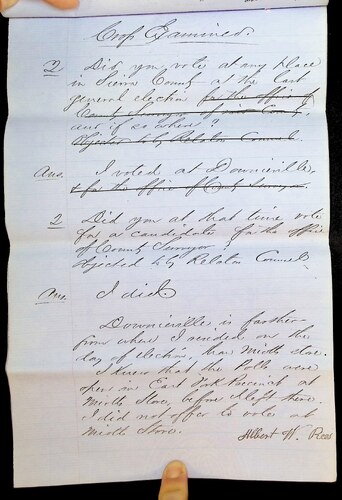 Cross Examined.
Q Did you vote at any place
in Sierra County at the last
general election for the office of
County Surveyor of Sierra County,
and if so where?
Objected to by Relators Counsel
Ans. I voted at Downieville,
& for the office of County Surveyor
Q Did you at that time, vote
for a candidate for the office
of County Surveyor
Objected to by Relators Counsel
Ans. I did
Downieville is farther
from where I resided on the
day of election, than Smiths Store.
I knew that the Polls were
open in East Fork Precinct at
Smiths Store, before I left there.
I did not offer to vote at
Smiths Store.
Albert W.